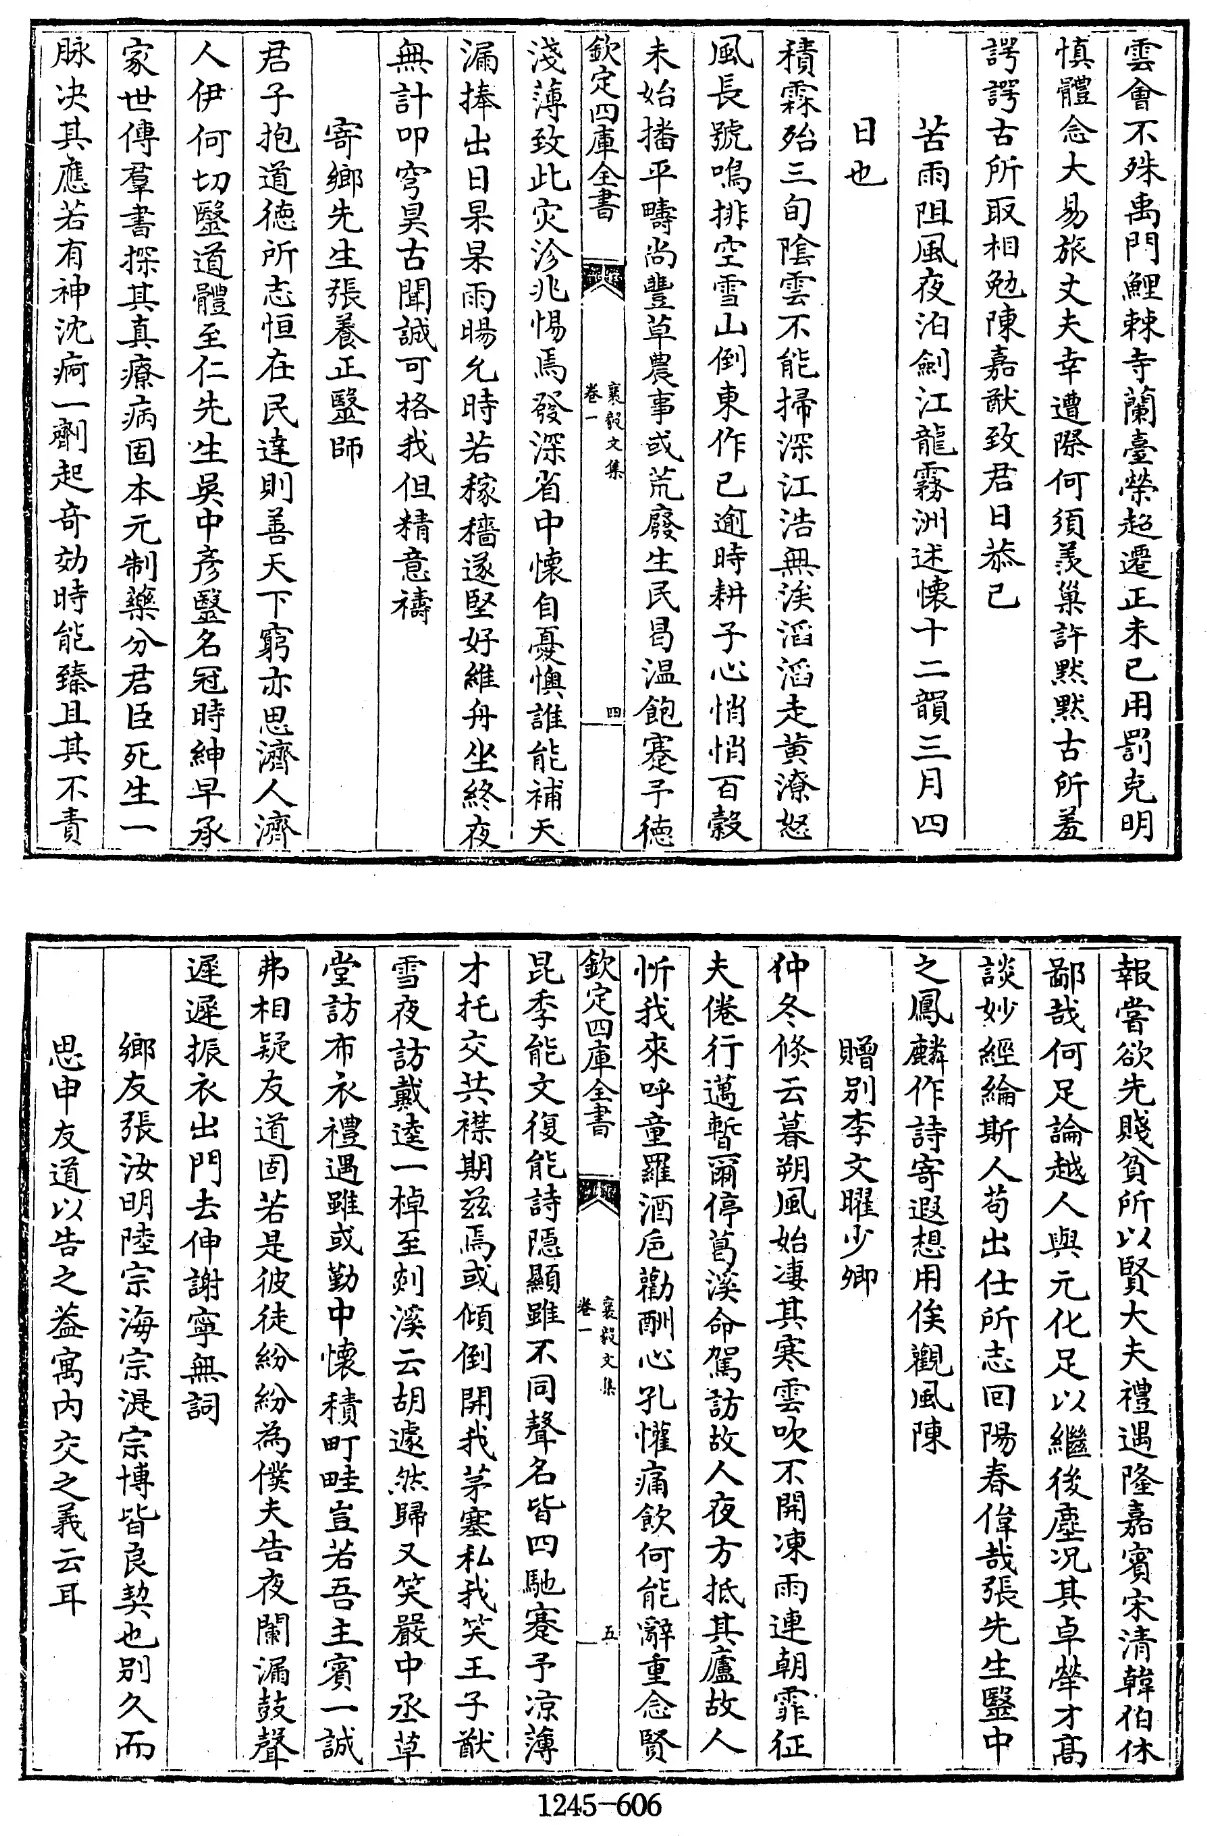 雲會不殊禹門鯉棘寺蘭臺榮超遷正未已用罰克明
慎體念大易旅丈夫幸遭際何須羨巢許黙黙古所羞
諤諤古所取相勉陳嘉猷致君日恭已
苦雨阻風夜泊劍江龍霧洲述懷十二韻三月四
日也
積霖殆三旬陰雲不能掃深江浩無涘滔滔走黄潦怒
風長號鳴排空雪山倒東作已逾時耕子心悄悄百榖
未始播平疇尚豐草農事或荒廢生民曷温飽蹇予徳
欽定四庫全書
襄毅文集
卷一
四
淺薄致此灾沴兆惕焉發深省中懷自憂懊誰能補天
漏捧出日杲杲雨暘允時若稼穡遂堅好維舟坐終夜
無計叩穹昊古聞誠可格我但精意禱
寄鄉先生張養正毉師
君子抱道德所志恒在民達則善天下窮亦思濟人濟
人伊何切毉道體至仁先生吳中彥毉名冠時紳早承
家世傳羣書探其真療病固本元制藥分君臣死生一
脉决其應若有神沈疴一劑起奇効時能臻且其不責
報嘗欲先賤貧所以賢大夫禮遇隆嘉賓宋清韓伯休
鄙哉何足論越人與元化足以繼後塵况其卓犖才髙
談妙經綸斯人苟出仕所志回陽春偉哉張先生毉中
之鳳麟作詩寄遐想用俟觀風陳
贈别李文曜少卿
仲冬倐云暮朔風始凄其寒雲吹不開凍雨連朝霏征
夫倦行邁暫爾停葛溪命駕訪故人夜方抵其廬故人
忻我來呼童羅酒巵勸酬心孔懽痛飲何能辭重念賢
欽定四庫全書
襄毅文集
卷一
五
昆季能文復能詩隱顯雖不同聲名皆四馳蹇予凉薄
才托交共襟期兹焉或傾倒開我茅塞私我笑王子猷
雪夜訪戴逵一棹至剡溪云胡遽然歸又笑嚴中丞草
堂訪布衣禮遇雖或勤中懷積町畦豈若吾主賓一誠
弗相疑友道固若是彼徒紛紛為僕夫告夜闌漏鼓聲
遲遲振衣出門去伸謝寧無詞
鄉友張汝明陸宗海宗湜宗博皆良契也别久而
思申友道以告之益寓内交之義云耳
1245-606